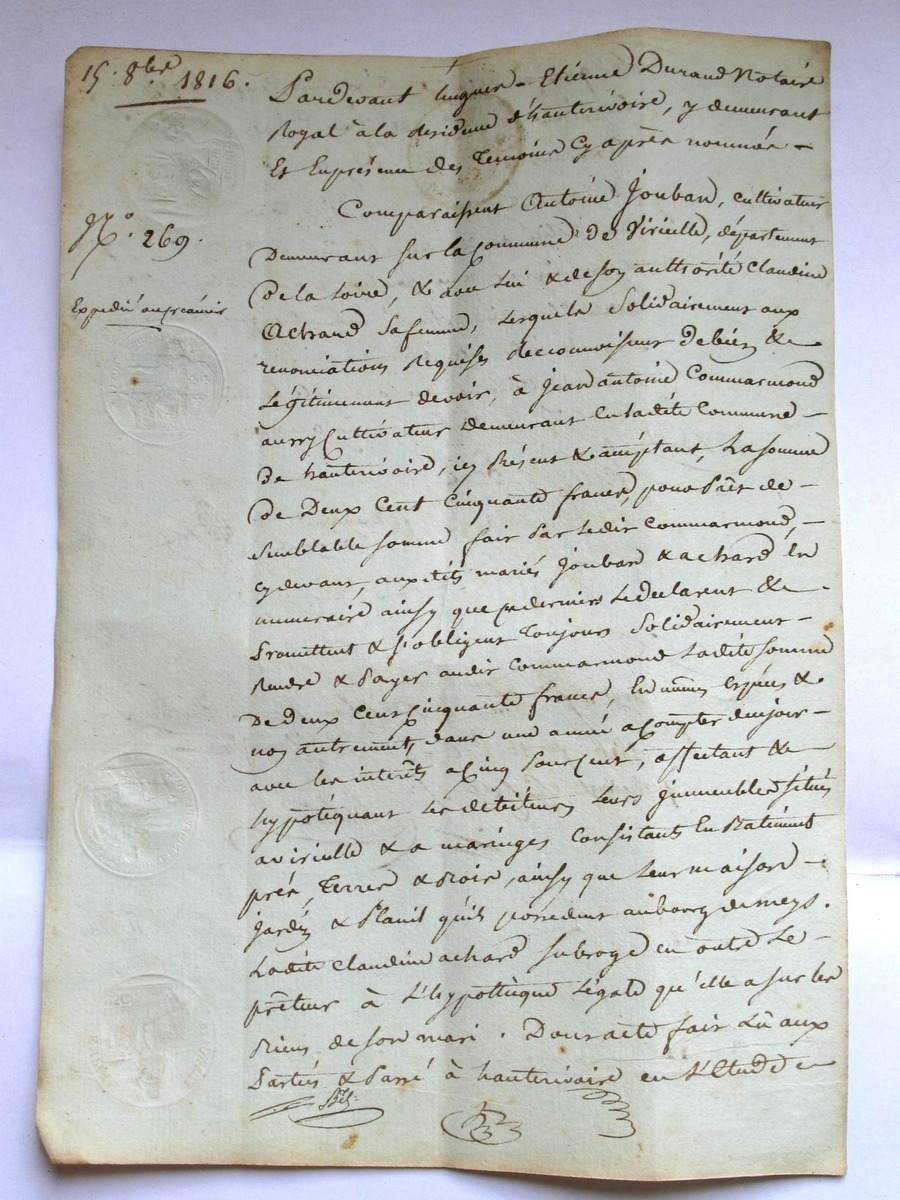 15. 8bre 1816.
N.° 269.
Expedié au préamier
Pardevant hugues-Etienne Durand Notaire
Royal à la residence d'hauterivoire, y demeurant
Et En présence des Temoins Cy après nommés -
Comparaissent Antoine Jouban, cultivateur
Demeurant sur la Commune de Virielle, département
De la Loire, & avec lui & de son authorité Claudine
Achard Sa femme, Lesquels Solidairement aux
renonciations Requises Reconnoissent de bien &
Légitimement devoir, à Jean antoine Commarmond
aussy Cultivateur demeurant En ladite Commune -
De hauterivoire, icy Présent & acceptant, La somme
de Deux Cent Cinquante francs, pour Prêt de -
Semblable somme fait Par ledit Commarmond, -
cy devant, aux dits mariés Jouban & achard En
numeraire ainsy que ces derniers Le déclarent &
Promettent & s'obligent Toujours Solidairement -
Rendre & Payer audit Commarmond Ladite somme
De deux Cent Cinquante francs, En mêmes Espéces &
non autrement, dans une année a Compter de ce jour -
avec les intérêts a Cinq Pour Cent, affectant &
hypotéquant Les debiteurs Leurs Jmmeubles situés
a virielle & a maringes Consistants En Batiment
prés, Terres & Bois, ainsy que Leur maison -
Jardin & Planit qu'ils possédent au bourg de meys.
Ladite Claudine achard subroge en outre Le -
prêteur à L'hypotheque Légale qu'elle a sur les
Biens de son mari. Dont acte fait Lû aux
Parties & Passé à hauterivoire en L'Etude